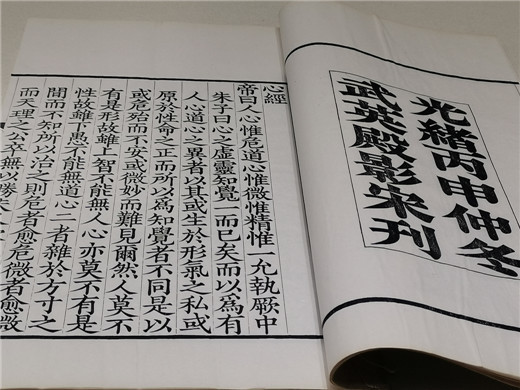 光緒丙申仲冬
武英殿影宋刊
心經
帝曰人心惟危道心惟微惟精惟一允執厥中
朱子曰心之虛靈知覺一而已矣而以為有
人心道心之異者以其或生於形氣之私或
原於性命之正而所以為知覺者不同是以
或危殆而不安或微妙而難見爾然人莫不
有是形故雖上智不能無人心亦莫不有是
性故雖下愚不能無道心二者雜於方寸之
間而不知所以治之則危者愈危微者愈微
而天理之公卒無以勝夫